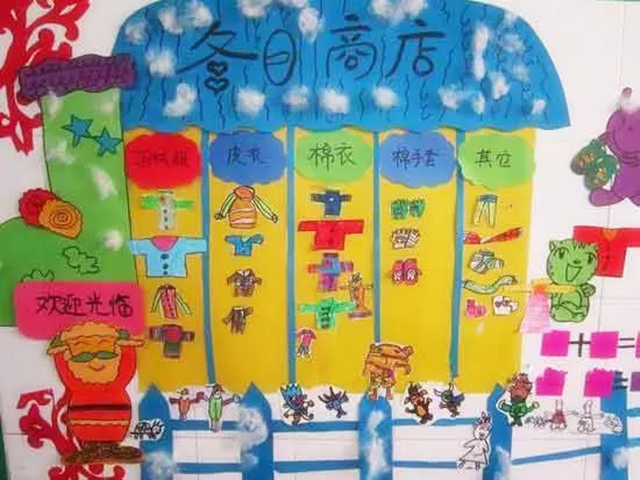 冬日商店
皮衣
棉衣
棉手套
其它
欢迎光临